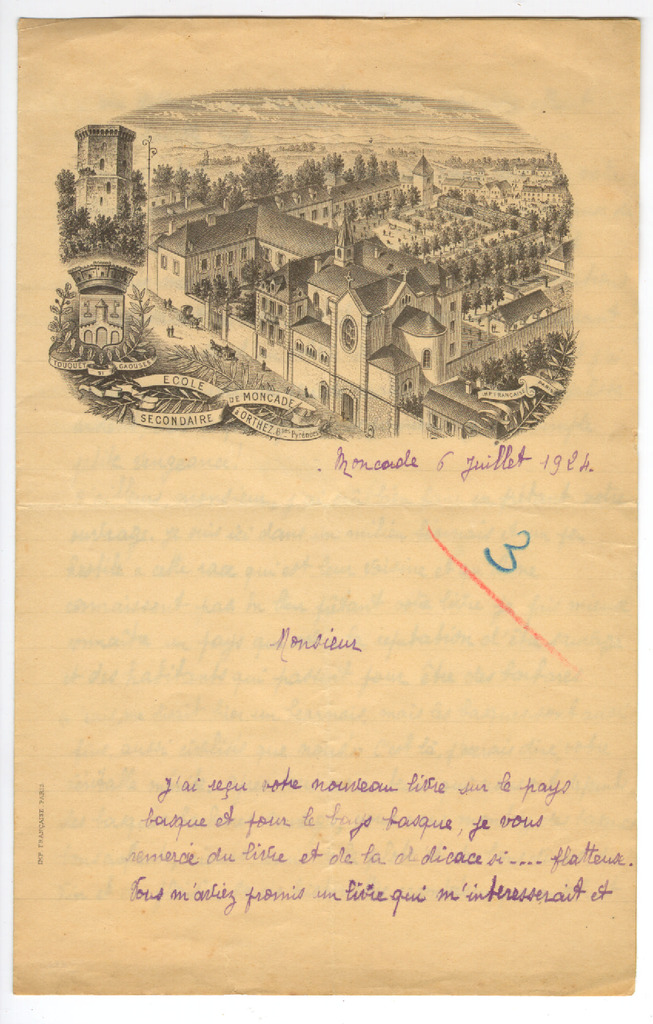 TOUQUET SI GAOUSES
ECOLE
SECONDAIRE
DE MONCADE
A ORTHEZ, Bses Pyrénées
IMP. FRANÇAISE PARIS
Moncade 6 Juillet 1924.
3
Monsieur
J'ai reçu votre nouveau livre sur le pays
basque et pour le pays basque, je vous
remercie du livre et de la dédicace si.... flatteuse.
Vous m'aviez promis un livre qui m'interesserait et
IMP FRANÇAISE PARIS